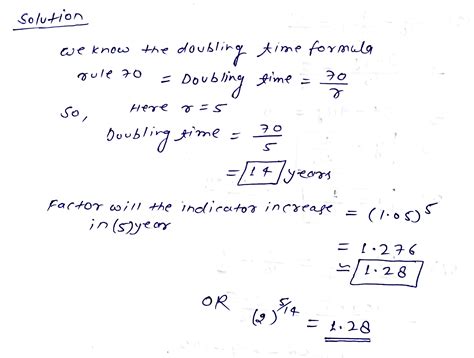 Solution
we know the doubling time formula
rule 70 = Doubling time = 70/r
So, Here r = 5
Doubling time = 70/5
= 14 years
Factor will the indicator increase = (1.05)^5
in (5) year
= 1.276
≃ 1.28
OR (2)^5/14 = 1.28